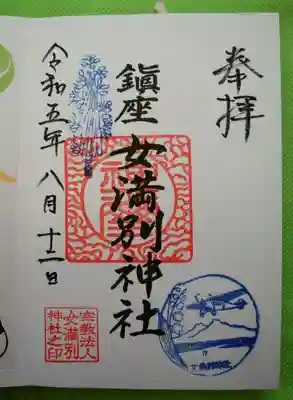 奉拝
鎮座 女満別神社
令和五年八月十二日
宗教法人
女満別
神社之印